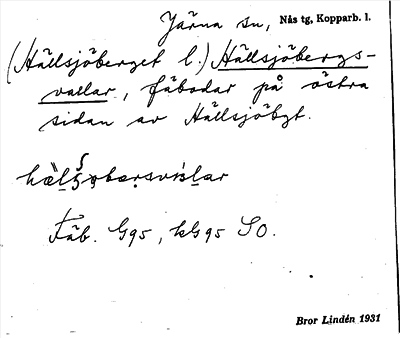 Järna sn, Nås tg, Kopparb. l.
(Hällsjöberget l.) Hällsjöbergs-
vallar, fäbodar på östra
sidan av Hällsjöbgt.
Fäb. G95, kG95 SO.
Bror Lindén 1931